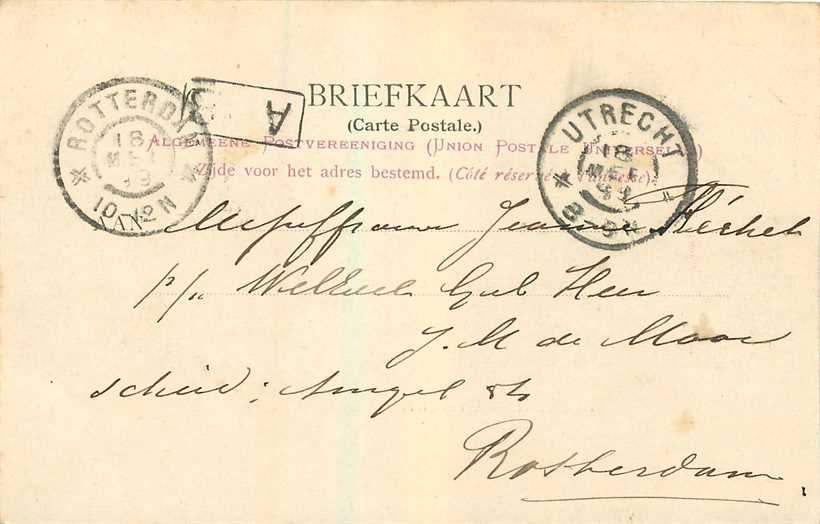 BRIEFKAART
(Carte Postale.)
ALGEMEENE POSTVEREENIGING (UNION POSTALE UNIVERSELLE)
Zijde voor het adres bestemd. (Côté réservé à l'adresse)
ROTTERDAM
18
MEI
99
10-12N
A
UTRECHT
18
MEI
99
8-9N
AAN
Mejuffrouw Jeanne
p/a Geb Heer
J. M de
Rotterdam